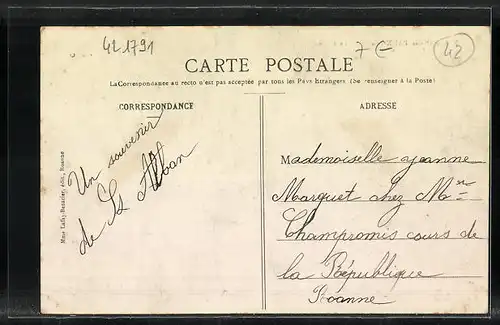 421791
7€
42
CARTE POSTALE
La Correspondance au recto n'est pas acceptée par tous les Pays Etrangers. (Se renseigner à la Poste)
CORRESPONDANCE
ADRESSE
Un souvenir
de St Alban
Mademoiselle Jeanne
Marguet chez Mme
Champromis cours de
la République
Roanne
Mme édit., Roanne